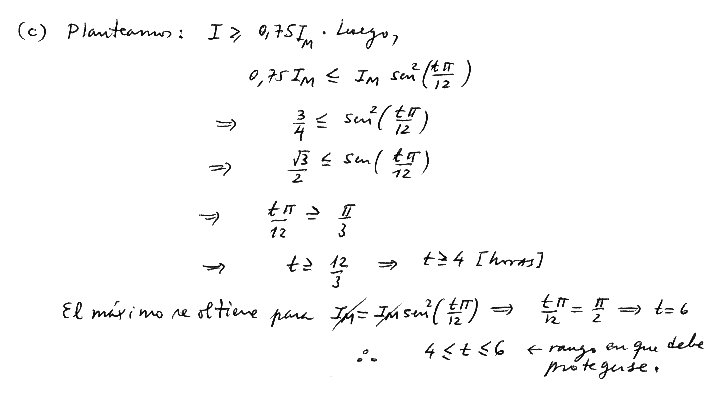 (c) Planteamos: I ≥ 0,75 I_M. Luego,
0,75 I_M ≤ I_M sen²(tπ/12)
⇒ 3/4 ≤ sen²(tπ/12)
⇒ √3/2 ≤ sen(tπ/12)
⇒ tπ/12 ≥ π/3
⇒ t ≥ 12/3 ⇒ t ≥ 4 [horas]
El máximo se obtiene para I_M = I_M sen²(tπ/12) ⇒ tπ/12 = π/2 ⇒ t=6
∴ 4 ≤ t ≤ 6 ← rango en que debe
protegerse.